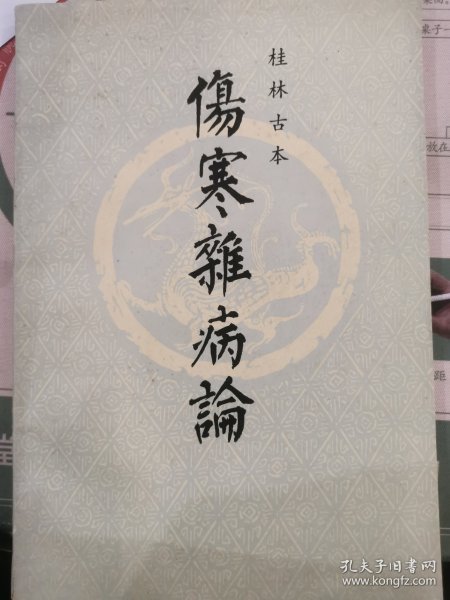 桂林古本
傷寒雜病論
桌子一
放在
距
孔夫子旧书网
www.kongfz.com